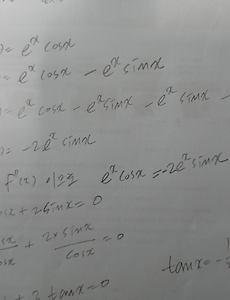 )= eˣ cosx
= eˣ cosx − eˣ sinx
)= eˣ cosx − eˣ sinx − eˣ sinx −
)= −2eˣ sinx
f''(x) 이므로 eˣ cosx = −2eˣ sinx
osx + 2sinx = 0
sx/osx + 2×sinx/cosx = 0
tanx = −
tanx = 0